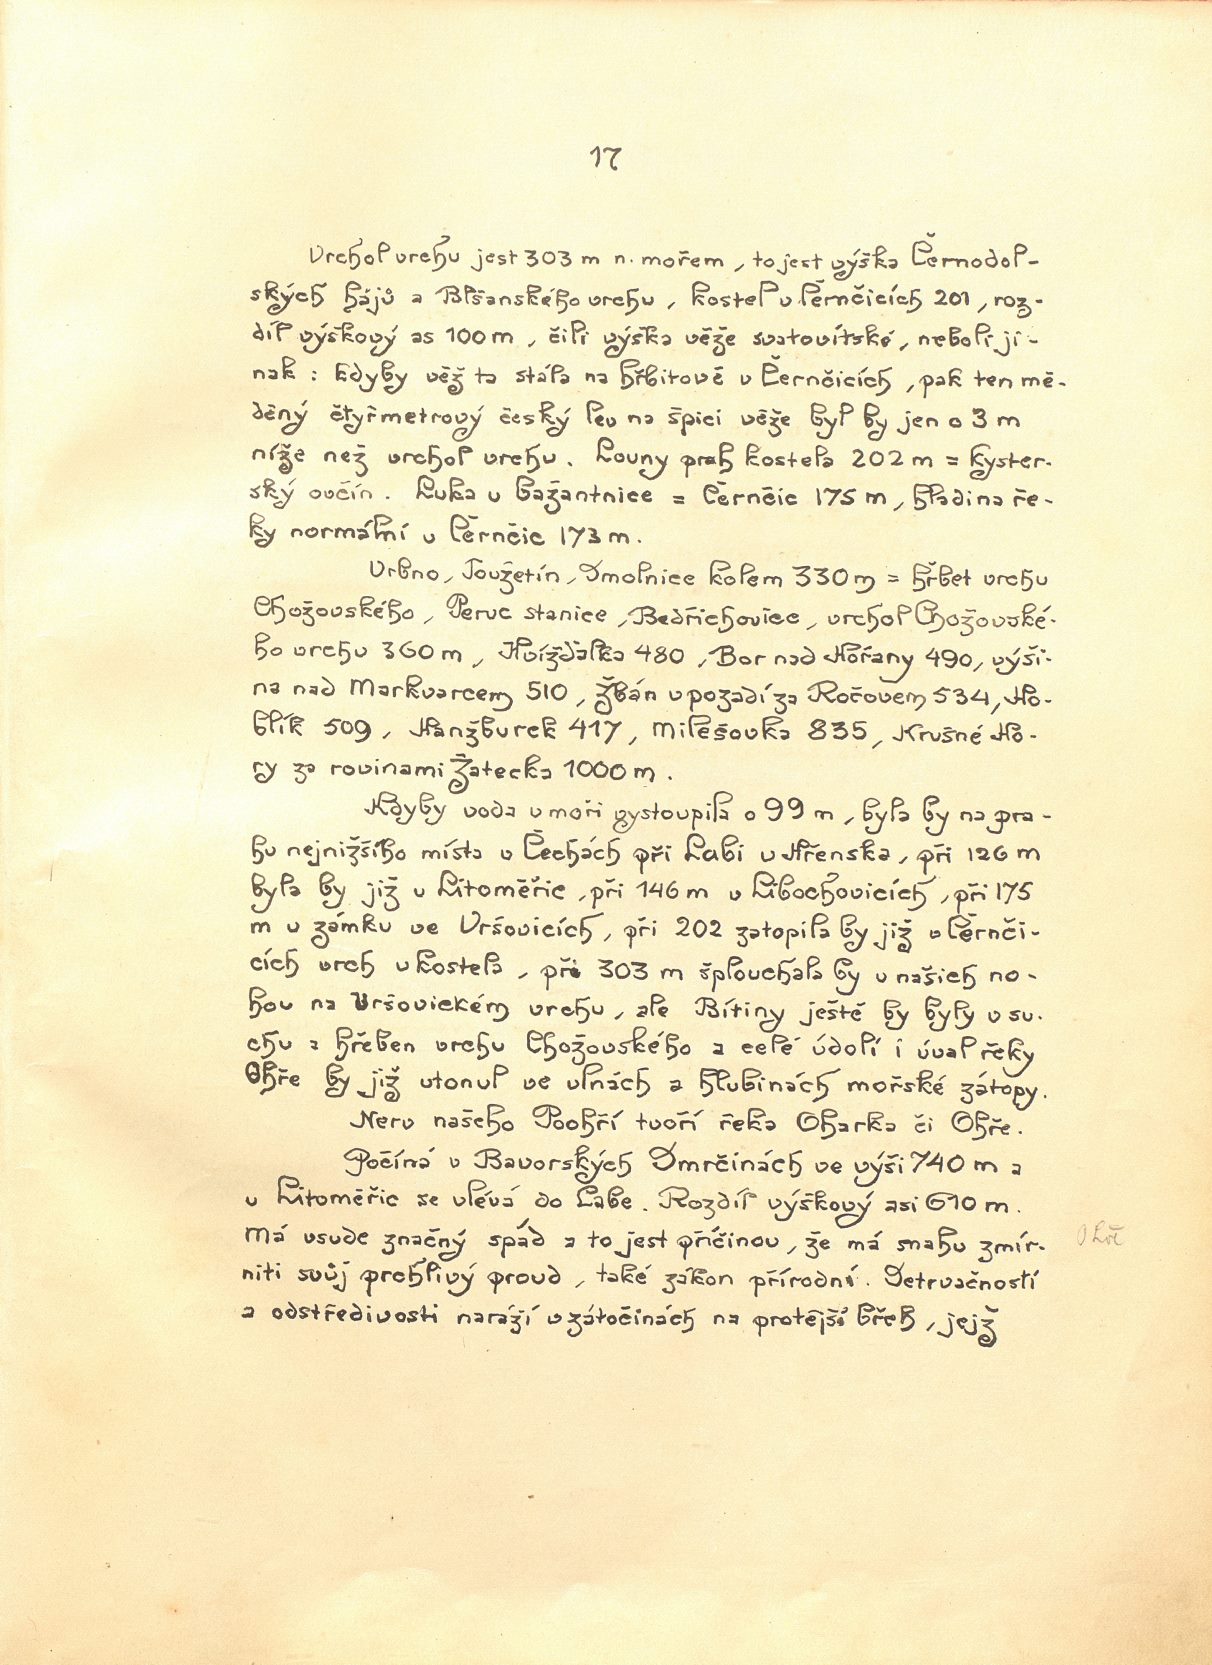 17
Vrchol vrchu jest 303 m n. mořem, to jest výška Černodol-
ských hájů a Blšanského vrchu, kostel v Černčicích 201, roz-
díl výškový as 100 m, čili výška věže svatovítské, neboli ji-
nak: kdyby věž ta stála na hřbitově v Černčicích, pak ten mě-
děný čtyřmetrový český lev na špici věže byl by jen o 3 m
níže než vrchol vrchu. Louny práh kostela 202 m = kyster-
ský ovčín. Luka u bažantnice = Černčic 175 m, hladina ře-
ky normální u Černčic 173 m.
Vrbno, Toužetín, Smolnice kolem 330 m = hřbet vrchu
Chožovského, Peruc stanice, Bedřichovice, vrchol Chožovské-
ho vrchu 360 m, Hvížďalka 480, Bor nad Hořany 490, výši-
na nad Markvarcem 510, Žbán v pozadí za Ročovem 534, Ho-
blík 509, Hanžburek 417, Milešovka 835, Krušné Ho-
ry za rovinami Žatecka 1000 m.
Kdyby voda v moři vystoupila o 99 m, byla by na pra-
hu nejnižšího místa v Čechách při Labi u Hřenska, při 126 m
byla by již u Litoměřic, při 146 m v Libochovicích, při 175
m u zámku ve Vršovicích, při 202 zatopila by již v Černči-
cích vrch u kostela, při 303 m šplouchala by u našich no-
hou na Vršovickém vrchu, ale Bítiny ještě by byly v su-
chu a hřeben vrchu Chožovského a celé údolí i úval řeky
Ohře by již utonul ve vlnách a hlubinách mořské zátopy.
Nerv našeho Poohří tvoří řeka Oharka či Ohře.
Počíná v Bavorských Smrčinách ve výši 740 m a
u Litoměřic se vlévá do Labe. Rozdíl výškový asi 610 m.
Má vsude značný spád a to jest příčinou, že má snahu zmír-
niti svůj prchlivý proud, také zákon přírodní. Setrvačností
a odstředivosti naráží v zátočinách na protější břeh, jejž